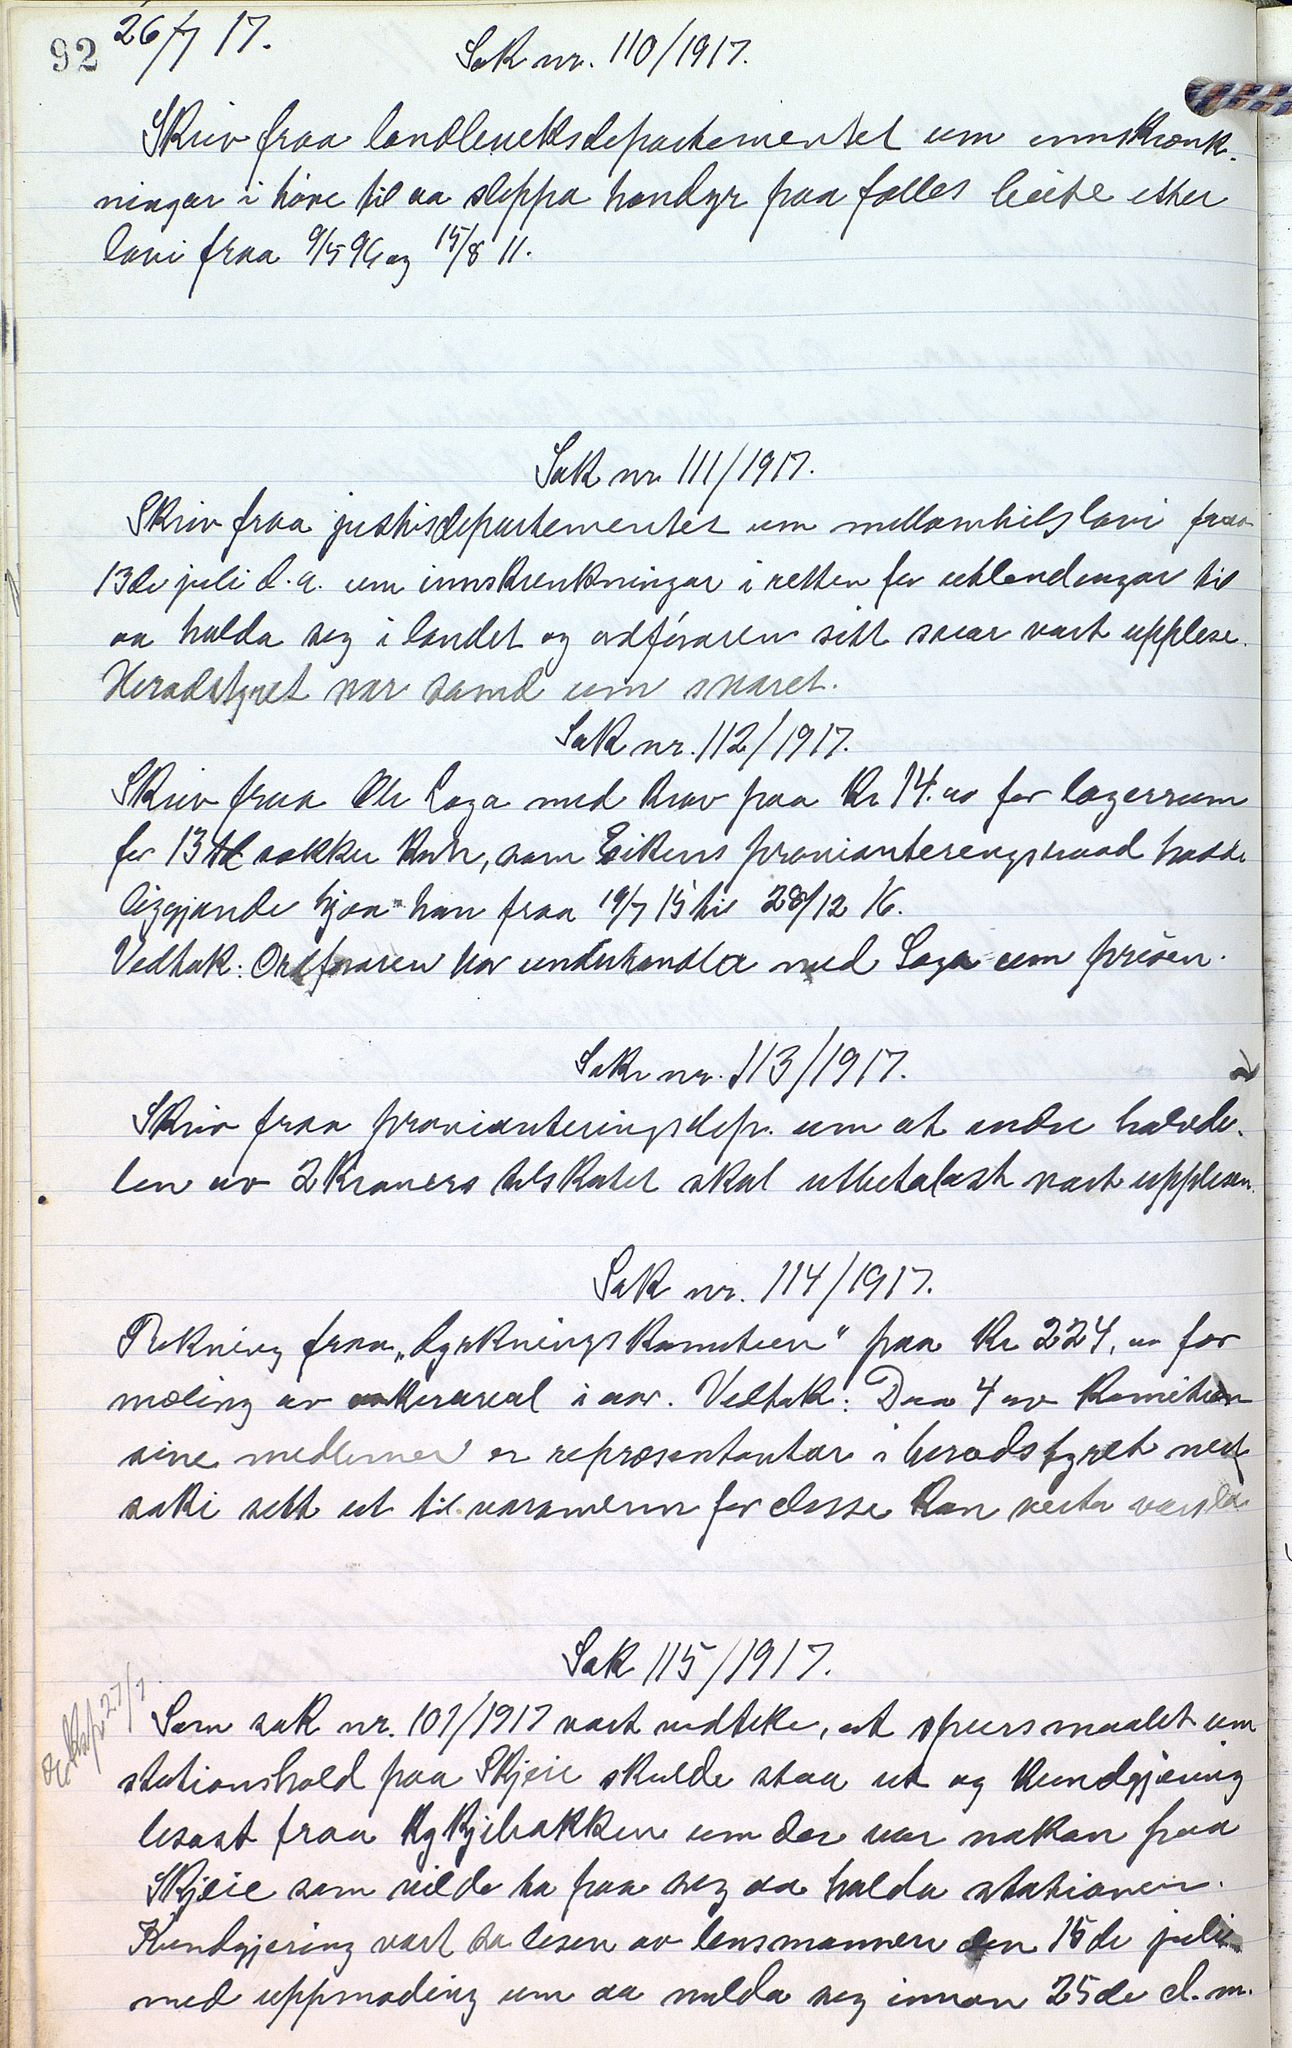 92
26/7 17.
Sak nr. 110/1917.
Skriv fraa landbruksdepartementet um innskrenk-
ningar i høve til aa sleppa handyr paa felles beite etter
lovi fraa 9/5 96 og 15/8 11.
Sak nr 111/1917.
Skriv fraa justisdepartementet um mellombilslovi fraa
13de juli d.a. um innskrenkningar i retten for utlendingar til
aa halda seg i landet og ordføraren sitt svar vart upplese.
Heradstyret var samd um svaret.
Sak nr. 112/1917.
Skriv fraa Ole Laga med krav paa Kr 14.00 for lagerrum
for 13 sekker korn, som Eikens provianteringsraad hadde
liggjande hjaa han fraa 19/7 15 til 28/12 16.
Vedtak: Ordføraren har underhandla med Laga um prisen.
Sak nr. 113/1917.
Skriv fraa provianteringsdep. um at andre halvde-
len av 2 kroners tilskotet skal utbetalast vart upplesen.
Sak nr. 114/1917.
Rekning fraa „dyrkningskomiteen" paa Kr 224,00 for
mæling av akerareal i aar. Vedtak: Daa 4 av komiteen
sine medlemer er representantar i heradstyret vert
saki sett ut til varamenn for desse kan verta varsla.
Sak 115/1917.
27/7.
Som sak nr. 107/1917 vart vedteke, at spursmaalet um
stationshald paa Skjeie skulde staa ut og kundgjering
lesast fraa kyrkjebakken um der var nokon paa
Skjeie som vilde ta paa seg aa halda stationen.
Kundgjering vart so lesen av lensmannen den 15de juli
med uppmoding um aa melda seg innan 25de d.m.